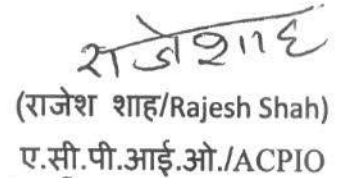 राजेशाह
(राजेश शाह/Rajesh Shah)
ए.सी.पी.आई.ओ./ACPIO